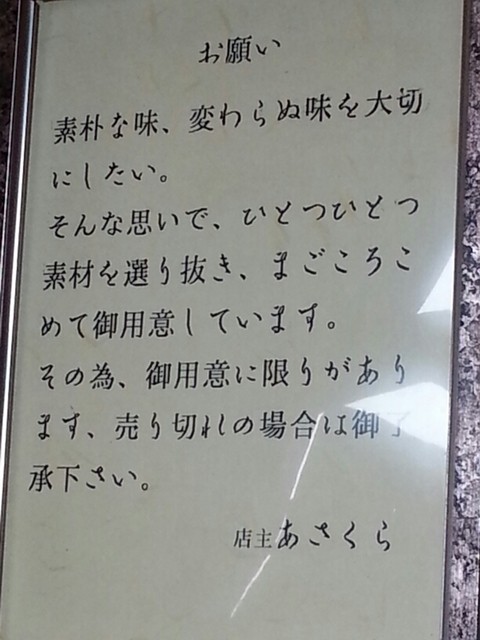 お願い
素朴な味、変わらぬ味を大切
にしたい。
そんな思いで、ひとつひとつ
素材を選り抜き、まごころこ
めて御用意しています。
その為、御用意に限りがあり
ます、売り切れの場合は御了
承下さい。
店主あさくら